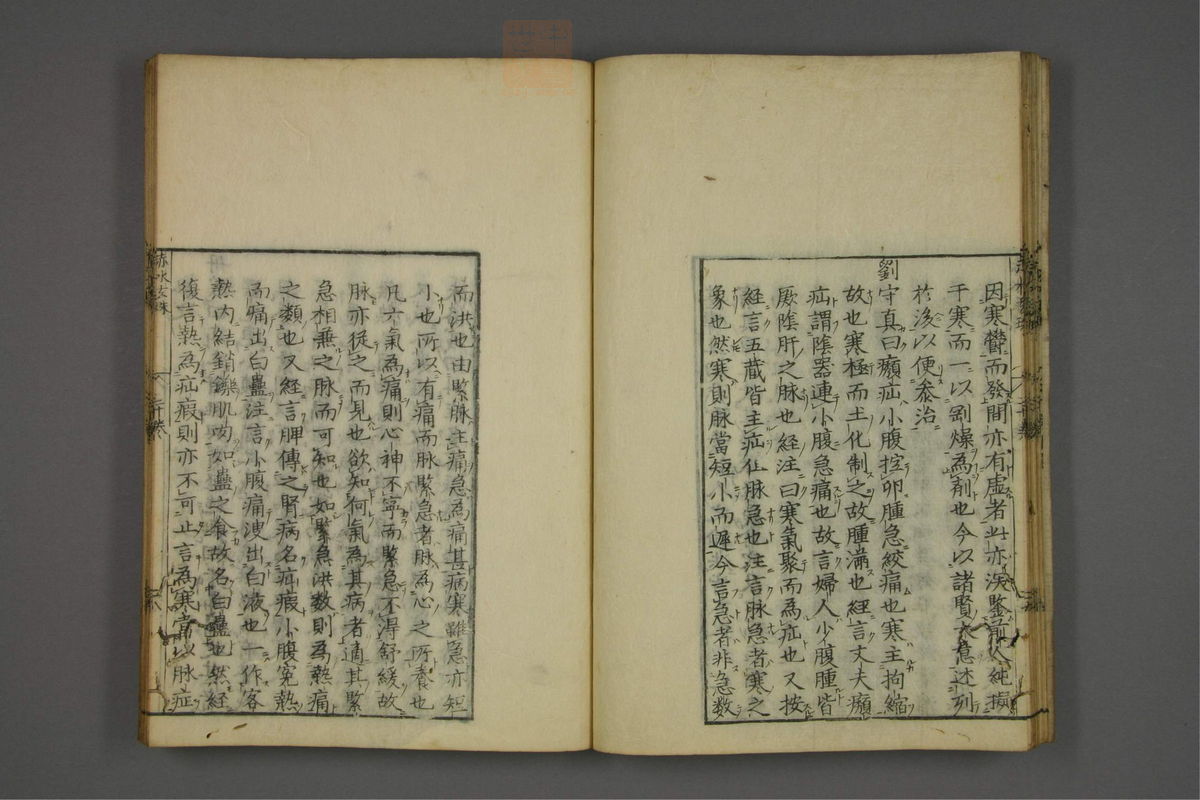 因寒鬱而發間亦有虛者此亦深鑒前人純掞
于寒而一以剛燥為劑也今以諸賢大意述列
於後以便叅治
劉守真曰癩疝小腹控卵腫急絞痛也寒主拘縮
故也寒極而土化制之故腫滿也經言丈夫癩
疝謂陰器連小腹急痛也故言婦人少腹腫皆
厥陰肝之脉也経注曰寒氣聚而為疝也又按
経言五蔵皆主疝但脉急也注言脉急者寒之
象也然寒則脉當短小而遲今言急者非急数
而洪也由緊脉主痛急為痛甚病寒雖急亦短
小也所以有痛而脉緊急者脉為心之所養也
凡六氣為痛則心神不寧而緊急不得舒緩故
脉亦従之而見也欲知何氣為其病者適其緊
急相兼之脉而可知也如緊急洪数則為熱痛
之類也又経言脾傳之腎病名疝瘕小腹冤熱
而痛出白蠱注言小腹痛溲出白液也一作客
熱内結銷鑠肌肉如蠱之食故名白蠱也然経
復言熱為疝瘕則亦不可止言為寒當以脉症
赤水玄珠